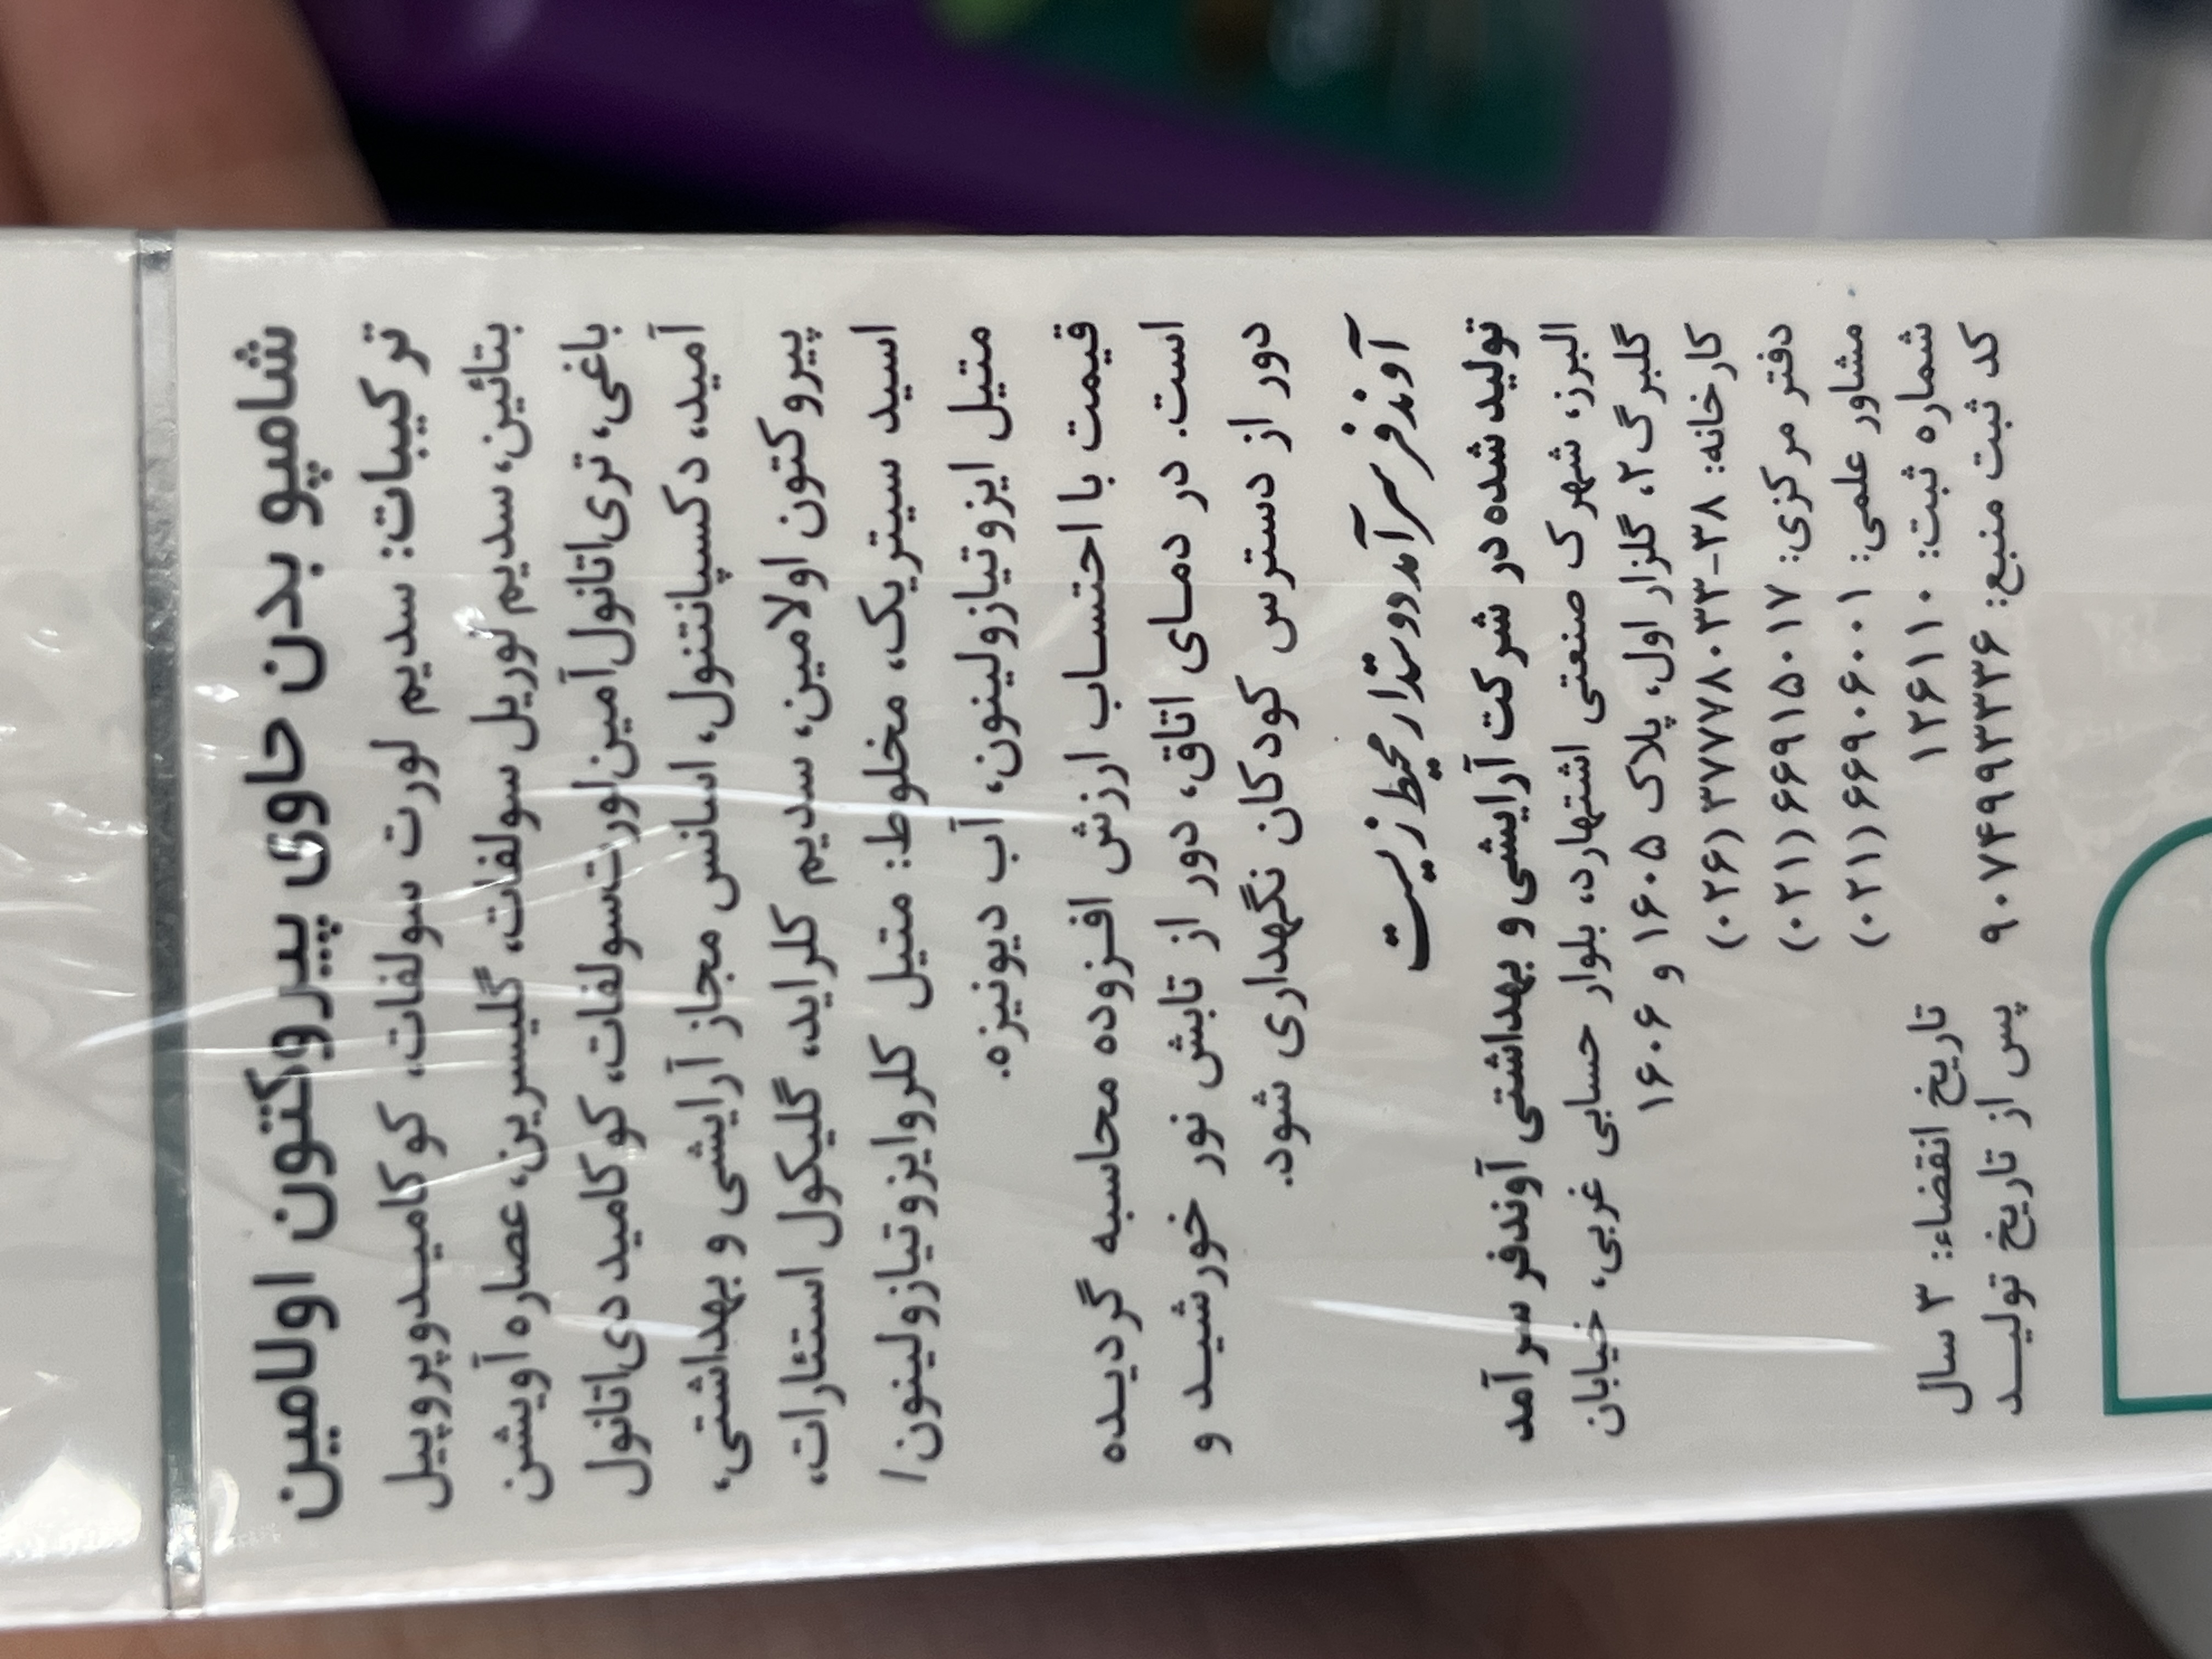 شامپو بدن حاوی پیروکتون اولامین
ترکیبات: سدیم لورت سولفات، کوکامیدوپروپیل
بتائین، سدیم لوریل سولفات، گلیسرین، عصاره آویشن
باغی، تری‌اتانول‌آمین‌لورت‌سولفات، کوکامید دی‌اتانول
آمید، دکسپانتنول، اسانس مجاز آرایشی و بهداشتی،
پیروکتون اولامین، سدیم کلراید، گلیکول استئارات،
اسید سیتریک، مخلوط: متیل کلروایزوتیازولینون/
متیل ایزوتیازولینون، آب دیونیزه.
قیمت با احتساب ارزش افزوده محاسبه گردیده
است. در دمای اتاق، دور از تابش نور خورشید و
دور از دسترس کودکان نگهداری شود.
آوندفر سرآمد دوستدار محیط زیست
تولید شده در شرکت آرایشی و بهداشتی آوندفر سرآمد
البرز، شهرک صنعتی اشتهارد، بلوار حسابی غربی، خیابان
گلبرگ ۲، گلزار اول، پلاک ۱۶۰۵ و ۱۶۰۶
کارخانه: ۳۸-۳۷۷۷۸۰۳۳ (۰۲۶)
دفتر مرکزی: ۶۶۹۱۵۰۱۷ (۰۲۱)
مشاور علمی: ۶۶۹۰۶۰۰۱ (۰۲۱)
شماره ثبت: ۱۲۶۱۱۰ تاریخ انقضاء: ۳ سال
کد ثبت منبع: ۹۰۷۴۹۹۳۳۳۶ پس از تاریخ تولید